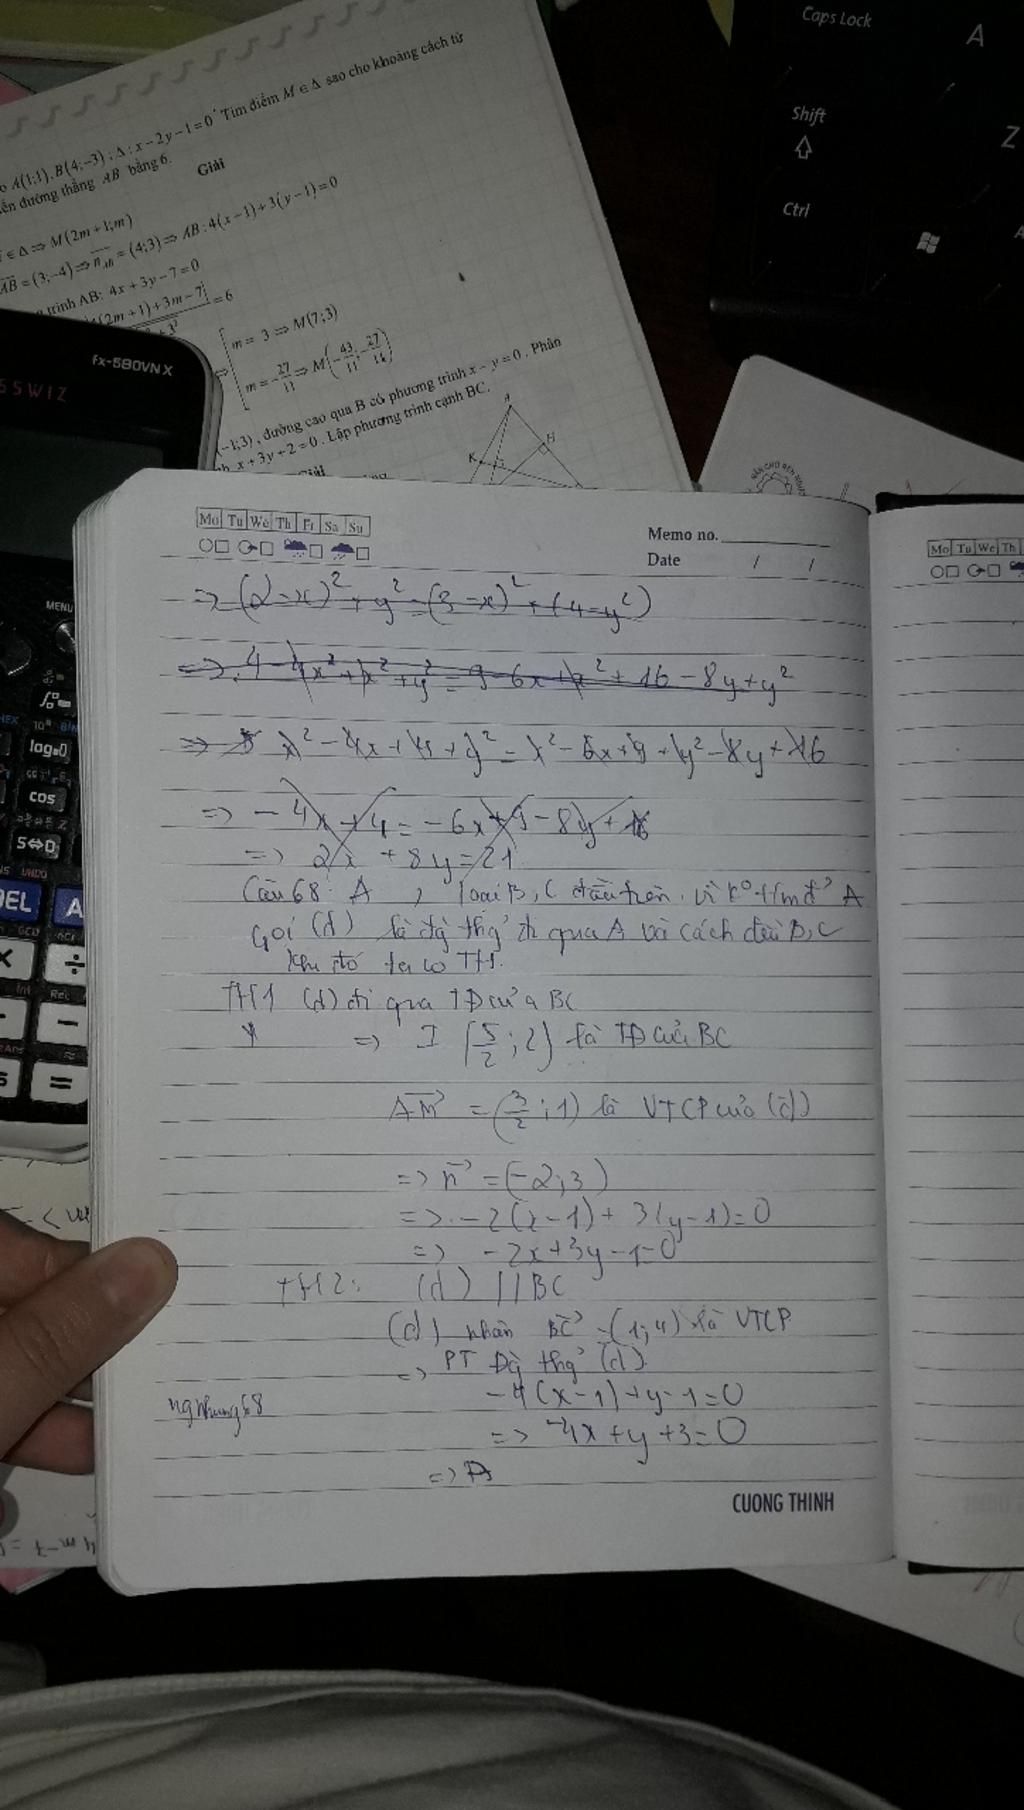 A(1;1), B(4;-3); Δ: x-2y-1=0. Tìm điểm M∈Δ sao cho khoảng cách từ
đường thẳng AB bằng 6.
Giải
∈Δ⇒M(2m+1;m)
AB=(3;-4)⇒n_AB=(4;3)⇒AB:4(x-1)+3(y-1)=0
trình AB: 4x+3y-7=0
(2m+1)+3m-7|
=6
m=3⇒M(7;3)
m=-27/11⇒M(-43/11;-27/11)
-1;3), đường cao qua B có phương trình x-y=0. Phân
x+3y+2=0. Lập phương trình cạnh BC.
Giải
A
H
K
Caps Lock
A
Shift
Z
Ctrl
fx-580VN X
MENU
log
cos
S⇔D
DEL
A
×
÷
−
=
Mo Tu We Th Fr Sa Su
Memo no.
Date / /
Mo Tu We Th
⇒ (2-x)² + y² = (3-x)² + (4-y²)
⇒ 4 - 4x² + x² + y² = 9 - 6x + x² + 16 - 8y + y²
⇒ x² - 4x + 4 + y² = x² - 6x + 9 + y² - 8y + 16
⇒ - 4x + 4 = -6x + 9 - 8y + 16
⇒ 2x + 8y = 21
Câu 68: A, loại B, C đầu tiên vì k° t/m đ' A
Gọi (d) là đg thg' đi qua A và cách đều B, C
khi đó ta có TH.
TH1 (d) đi qua TĐ của BC
⇒ I (5/2; 2) là TĐ của BC
AM = (3/2; 1) là VTCP của (d)
⇒ n = (-2; 3)
⇒ -2(x-1) + 3(y-1) = 0
⇒ -2x+3y-1=0
TH2: (d) // BC
(d) nhận BC = (1; 4) là VTCP
⇒ PT Đg thg' (d).
-4(x-1)+y-1=0
ngnhung68
⇒ -4x+y+3=0
⇒ A
CUONG THINH